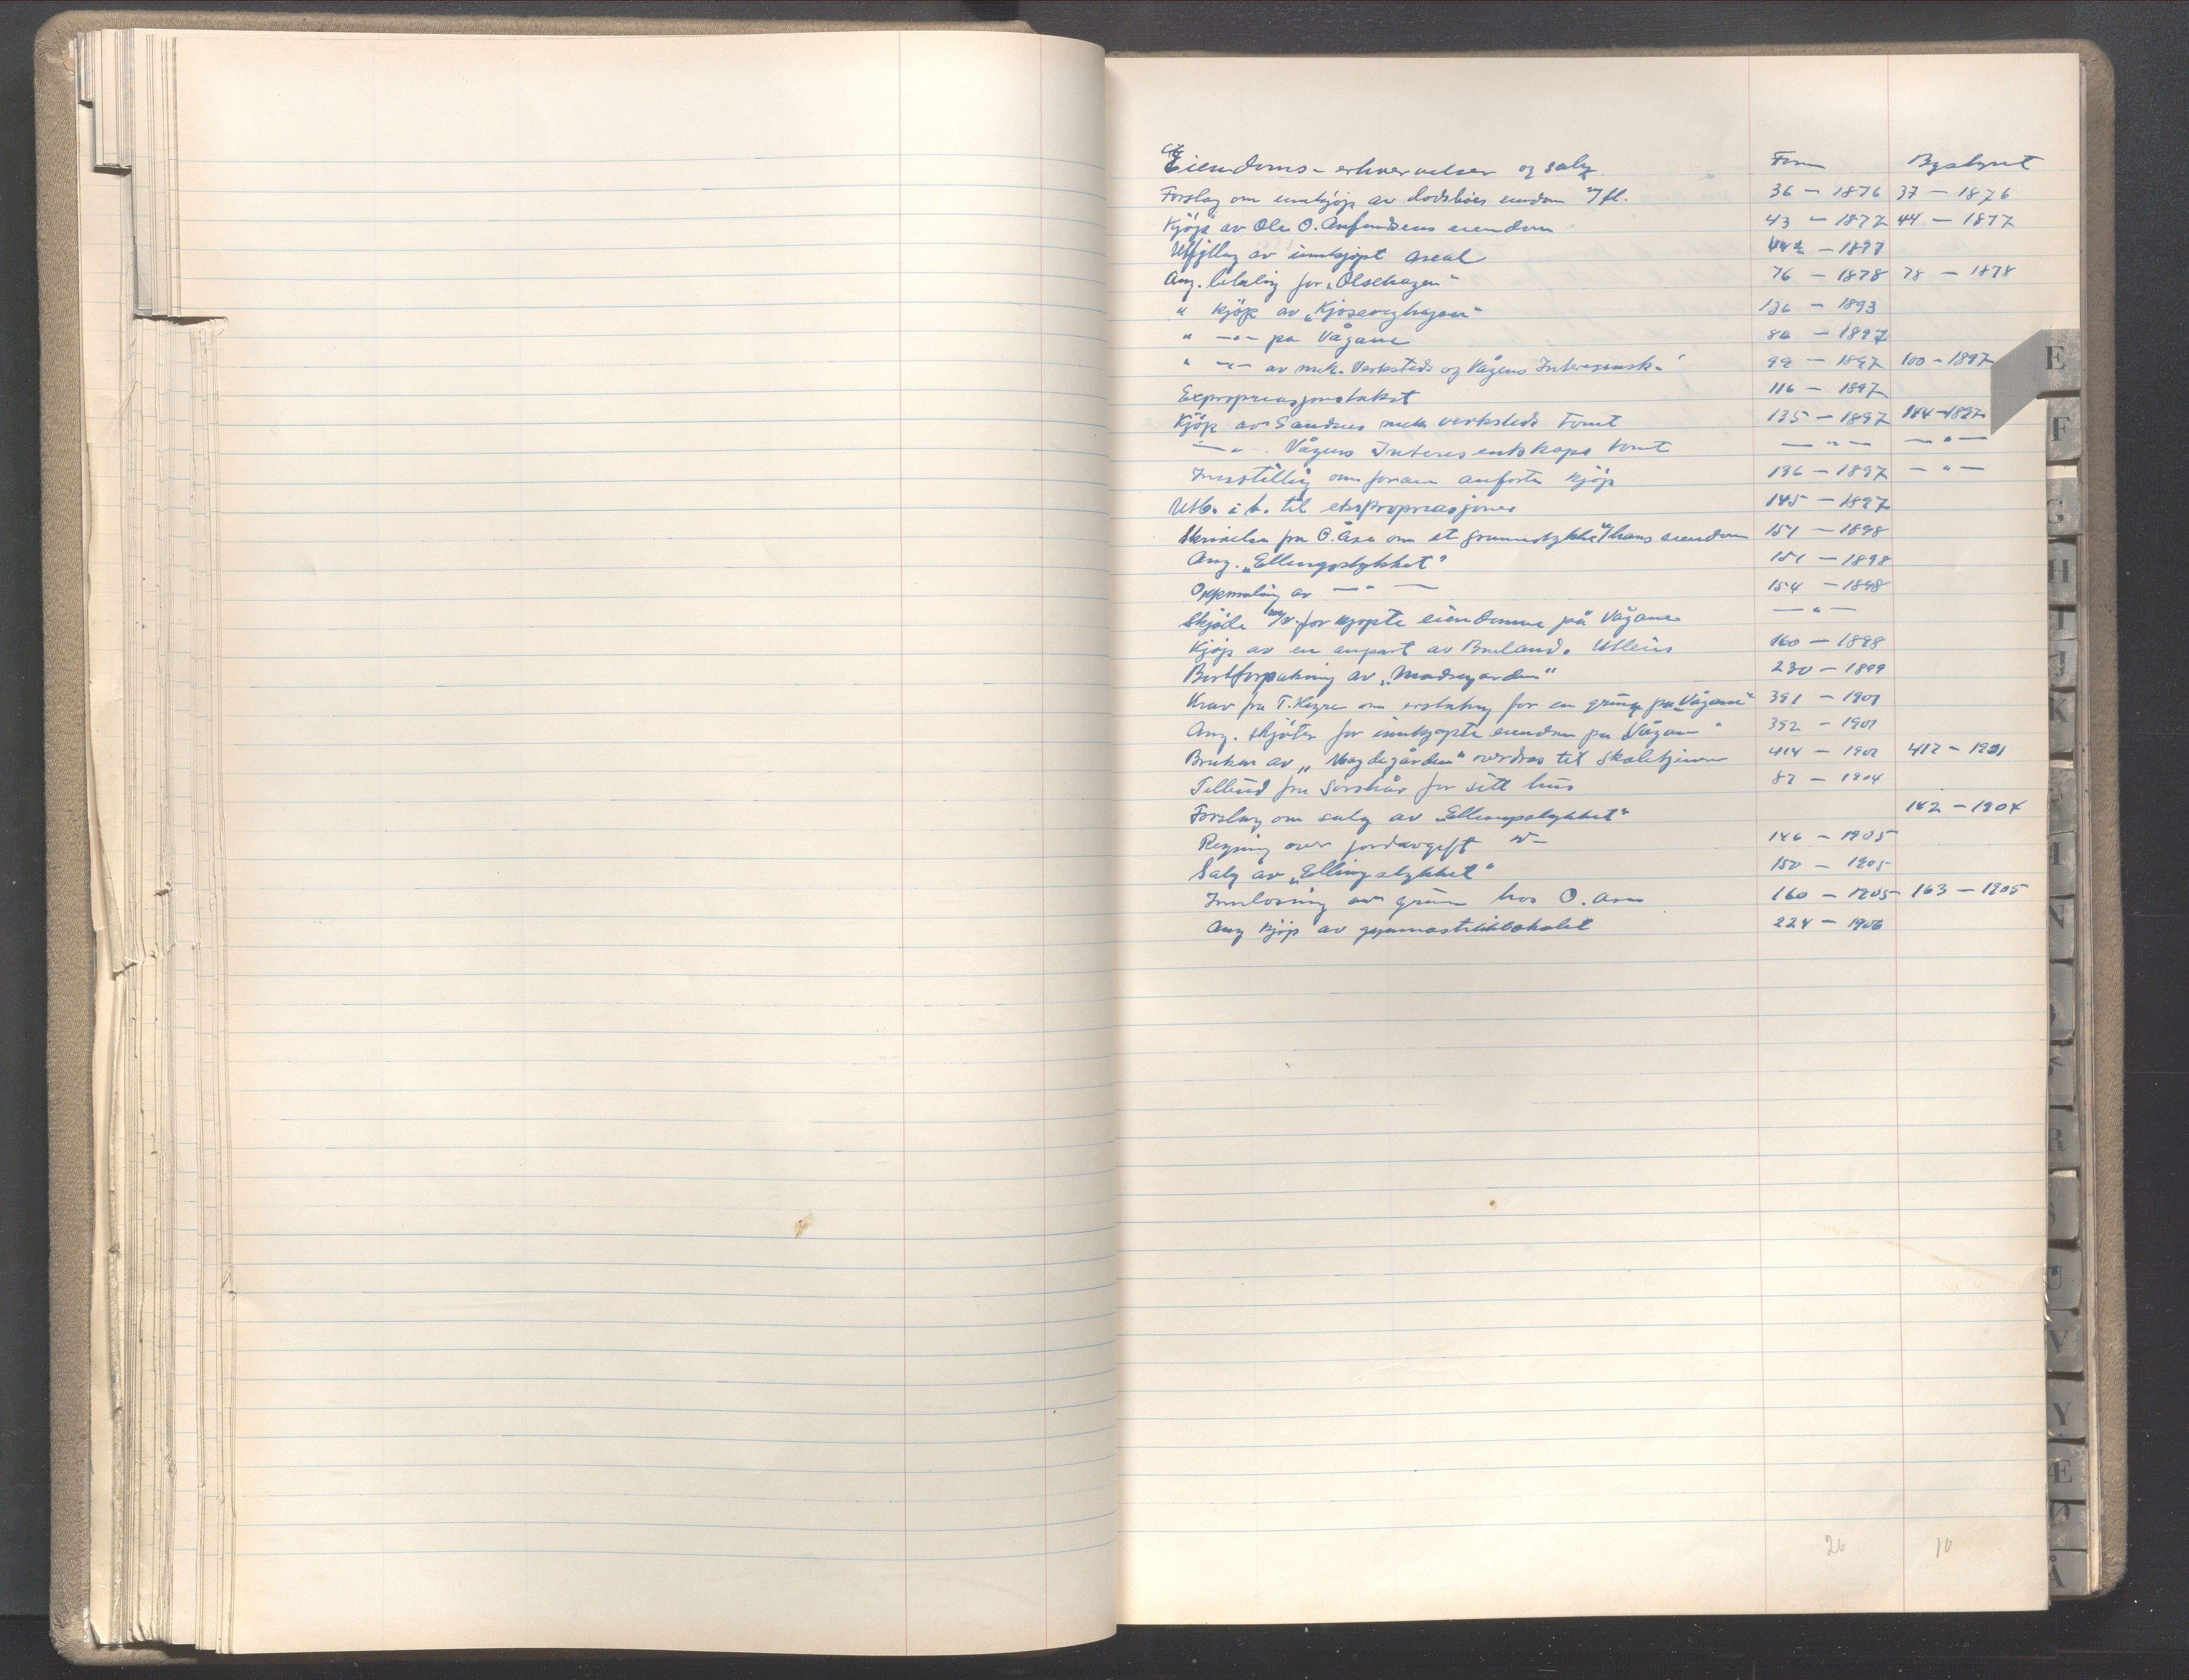 Eiendoms-erhvervelser og salg Form Bystyret
Forslag om innkjøp av eiendom 36 — 1876 37 — 1876
Kjøp av Ole O. Anfindsens eiendom 43 — 1877 44 — 1877
av innkjøpt areal
Ang. betaling for „Olsehagen" 76 — 1878 78 — 1878
" kjøp av „Kjosevighagen" 136 — 1893
" —"— på Vågane — 1897
" —"— av mek. Verksteds og Vågens Interessensk. 99 — 1897 100 — 1897
Expropriasjonstakst 116 — 1897
Kjøp av Sandnes mek verksteds tomt 135 — 1897 — 1897
—"— Vågens Interesentskaps tomt —"— —"—
Innstilling om foran anførte kjøp 136 — 1897 —"—
Utb. i b. til ekspropriasjoner 145 — 1897
Skrivelse fra O. Åse om et grunnstykke hans eiendom 151 — 1898
Ang. „Ellingsstykket" 151 — 1898
Oppmåling av —"— 154 — 1898
Skjøde for kjøpte eiendomme på Vågane —"—
Kjøp av en anpart av Utleis 160 — 1898
Bortforpaktning av 230 — 1899
Krav fra T. Høyre om erstatning for en grunn på „Vågane" 391 — 1901
Ang. skjøter for innkjøpte eiendom på Vågane " 392 — 1901
Bruken av „Magdegården" overdras til Skoletjener 414 — 1902 412 — 1901
Tilbud fra for sitt hus 87 — 1904
Forslag om salg av „Ellingsstykket" 142 — 1904
Regning over jordavgift 146 — 1905
Salg av „Ellingsstykket" 150 — 1905
Innløsning av grunn hos O. Åse 160 — 1905 163 — 1905
Ang kjøp av gymnastikklokalet 224 — 1906
26 10
E
F
G
H
I
J
K
N
R
S
U
V
Y
Æ
Å